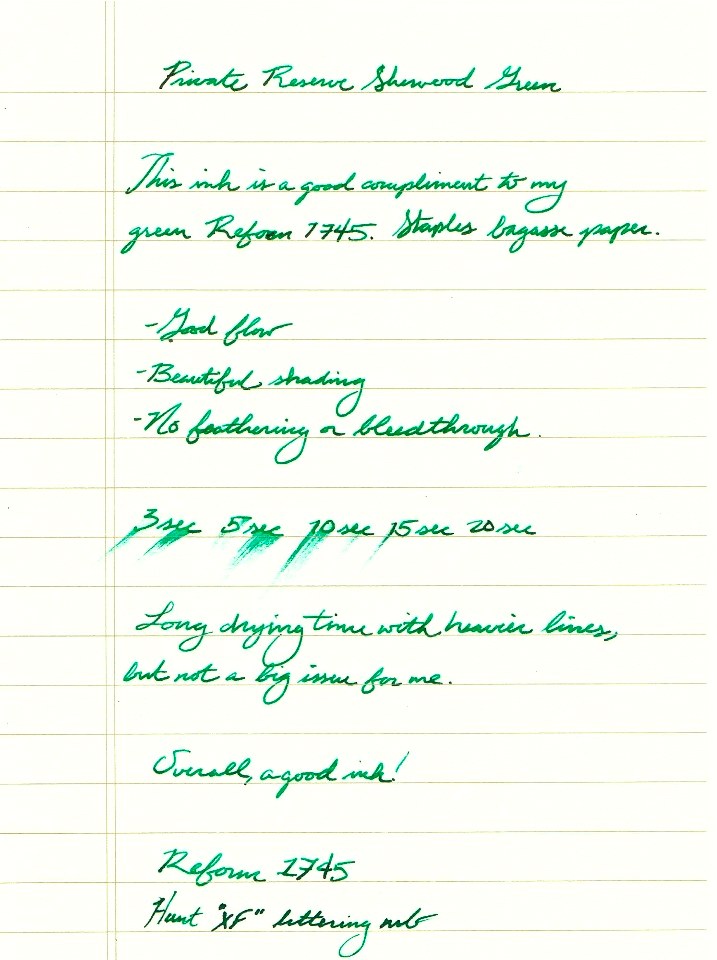 Private Reserve Sherwood Green
This ink is a good compliment to my
green Reform 1745. Staples bagasse paper.
-Good flow
-Beautiful shading
-No feathering or bleedthrough.
3 sec 5 sec 10 sec 15 sec 20 sec
Long drying time with heavier lines,
but not a big issue for me.
Overall, a good ink!
Reform 1745
Hunt "XF" lettering nib